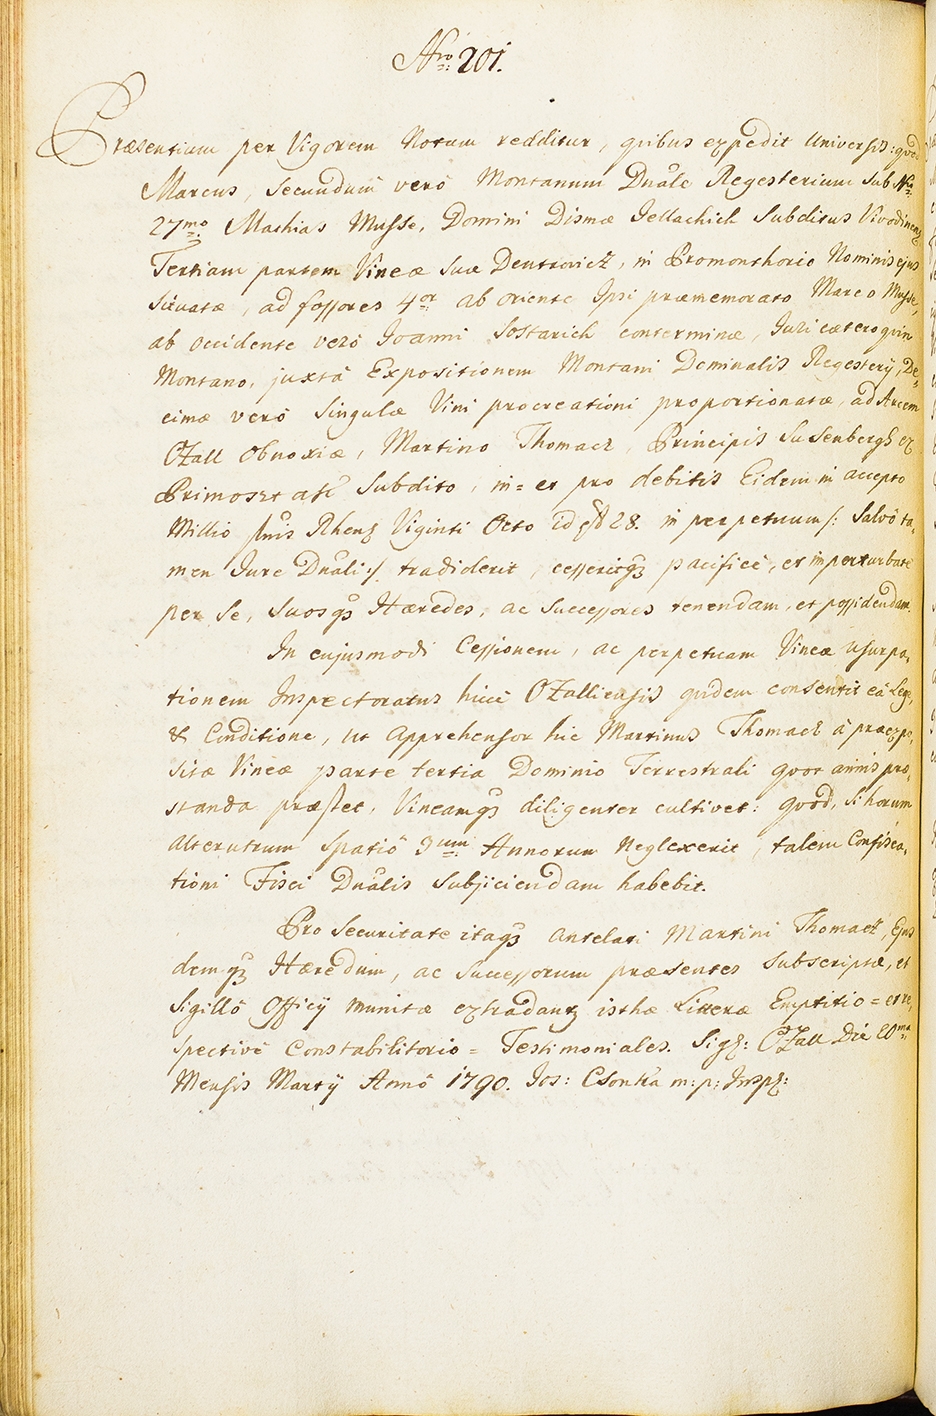 Nro 201.
Præsentium per Vigorem Notum redditur, quibus expedit Universis: quod
Marcus, secundum verò Montanum Dnãle Regesterium sub Nro
27mo Mathias Musse, Domini Dismæ Jellachich Subditus Vivodinenz
Tertiam partem Vineæ suæ Dentrovicz, in Promonthorio Nominis ejus
situatæ, ad fossores 4or ab oriente Ipsi præmemorato Marco Musse,
ab occidente verò Joanni Sostarich conterminæ, Juri cæteroquin
Montano, juxtà Expositionem Montani Dominalis Regestery, De-
cimæ verò singulæ Vini procreationi proportionatæ, ad Arcem
Ozall obnoxiæ, Martino Thomacz, Principis Susenbergh ex
Subdito, in= et pro debitis Eidem in accepto
Millio fnis Rhenz Viginti Octo id est 28. in perpetuum /: Salvô ta-
men Jure Dnãli :/ tradiderit, cesseritqz pacificè, et imperturbatè
per se, suosqz Hæredes, ac successores tenendam, et possidendam.
In cujusmodi Cessionem, ac perpetuam Vineæ usurpa-
tionem Inspectoratus hicce Ozalliensis quidem consentit eâ Lege,
& Conditione, ut Apprehensor hic Martinus Thomacz à præexpo-
sitæ Vineæ parte tertia Dominio Terrestrali quot annis præ-
standa præstet, Vineamqz diligenter cultivet: quod, si horum
alterutrum spatiô 3um Annorum Neglexerit, talem Confisca-
tioni Fisci Dnãlis subjiciendam habebit.
Pro Securitate itaqz antelati Martini Thomacz, Ejus
demqz Hæredum, ac successorum præsentes subscriptæ, et
Sigillô Officy munitæ extradantz isthæ Litteræ Emptitio= et re-
spectivè Constabilitorio= Testimoniales. Sigz: Ozall Die 20ma
Mensis Marty Annô 1790. Jos: Csonka m:p: Inspz: